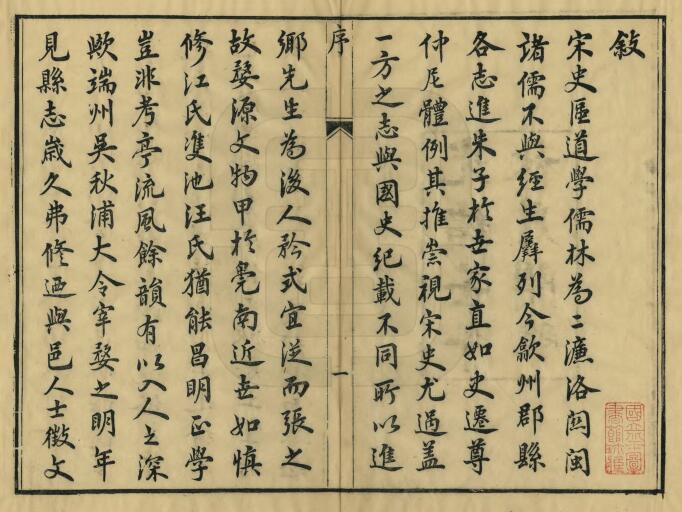 敍
宋史區道學儒林為二濂洛関閩
諸儒不與經生羼列今歙州郡縣
各志進朱子於世家直如史遷尊
仲尼體例其推崇視宋史尤過盖
一方之志與國史紀載不同所以進
序
一
鄉先生為後人矜式宜从而張之
故婺源文物甲於皖南近世如慎
修江氏雙池汪氏猶能昌明正學
豈非考亭流風餘韻有以入人之深
歟端州吳秋浦大令宰婺之明年
見縣志歲久弗修迺與邑人士徵文